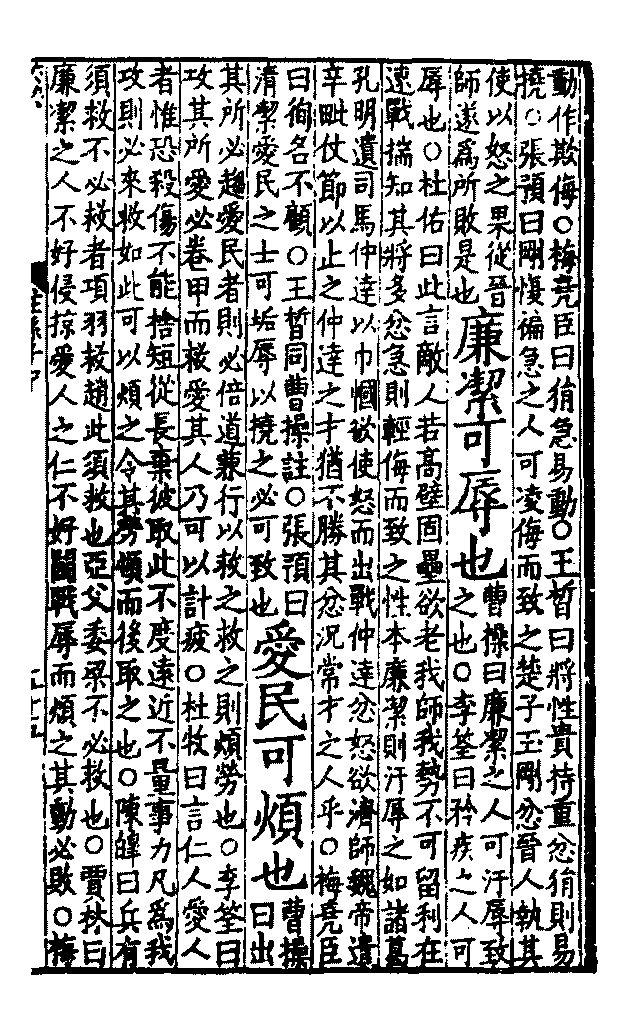 動作欺侮○梅堯臣曰狷急易動○王晳曰將性貴持重忿狷則易
撓○張預曰剛愎褊急之人可凌侮而致之楚子玉剛忿晉人執其
使以怒之果從晉
師遂為所敗是也
廉潔可辱也
曹操曰廉潔之人可汙辱致
之也○李筌曰矜疾之人可
辱也○杜佑曰此言敵人若高壁固壘欲老我師我勢不可留利在
速戰揣知其將多忿急則輕侮而致之性本廉潔則汙辱之如諸葛
孔明遺司馬仲達以巾幗欲使怒而出戰仲達忿怒欲濟師魏帝遣
辛毗仗節以止之仲達之才猶不勝其忿況常才之人乎○梅堯臣
曰徇名不顧○王晳同曹操註○張預曰
清潔愛民之士可垢辱以撓之必可致也
愛民可煩也
曹操
曰出
其所必趨愛民者則必倍道兼行以救之救之則煩勞也○李筌曰
攻其所愛必卷甲而救愛其人乃可以計疲○杜牧曰言仁人愛人
者惟恐殺傷不能捨短從長棄彼取此不度遠近不量事力凡為我
攻則必來救如此可以煩之令其勞頓而後取之也○陳皥曰兵有
須救不必救者項羽救趙此須救也亞父委梁不必救也○賈林曰
廉潔之人不好侵掠愛人之仁不好鬬戰辱而煩之其動必敗○梅